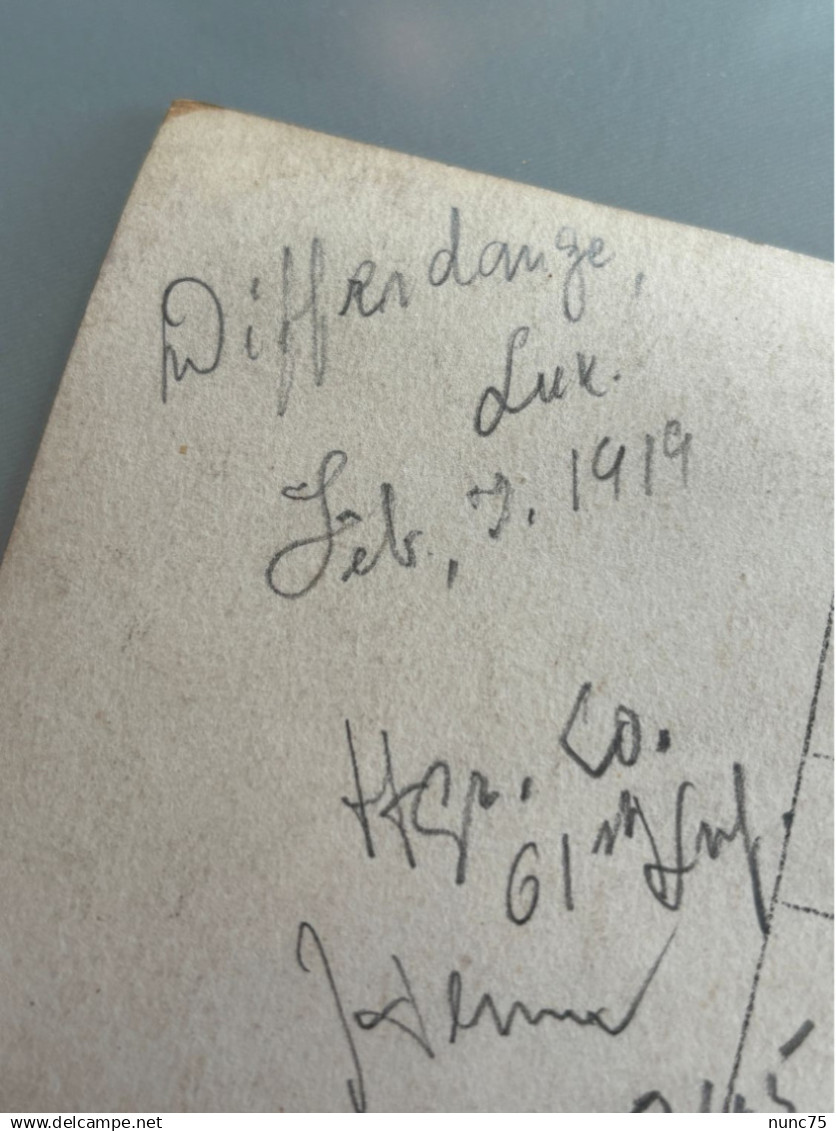 Differdange,
Lux.
Feb, 7. 1919
Hqr. Co.
61st Inf.
www.delcampe.net
nunc75